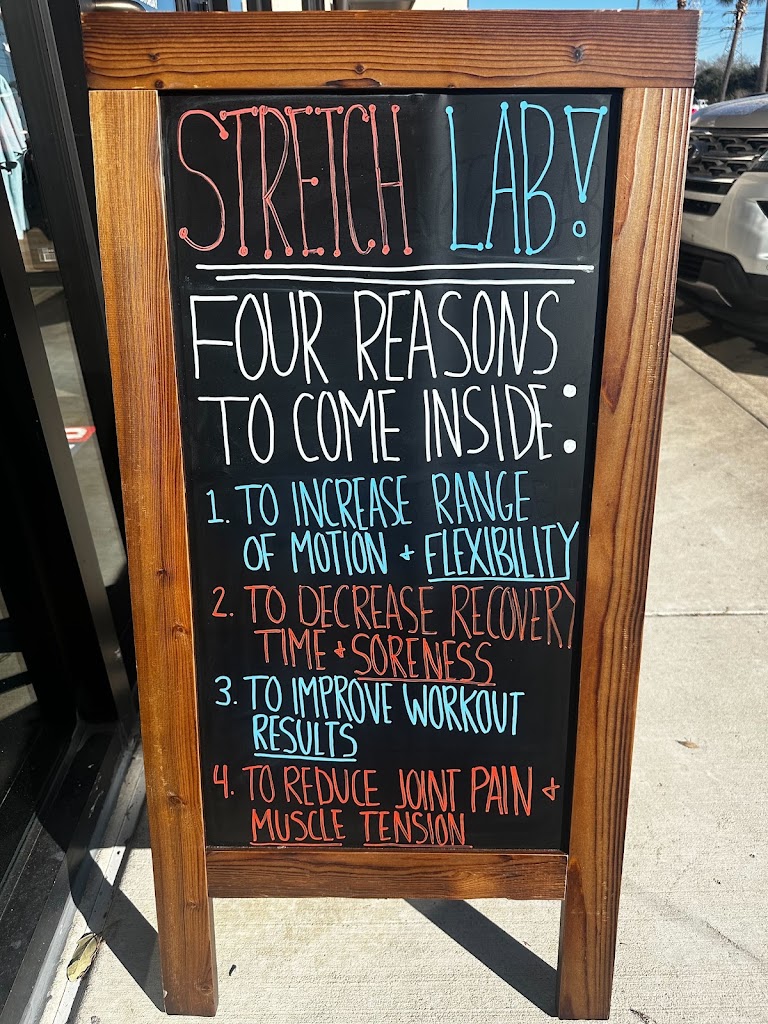 STRETCH LAB!
FOUR REASONS
TO COME INSIDE:
1. TO INCREASE RANGE
OF MOTION + FLEXIBILITY
2. TO DECREASE RECOVERY
TIME + SORENESS
3. TO IMPROVE WORKOUT
RESULTS
4. TO REDUCE JOINT PAIN +
MUSCLE TENSION